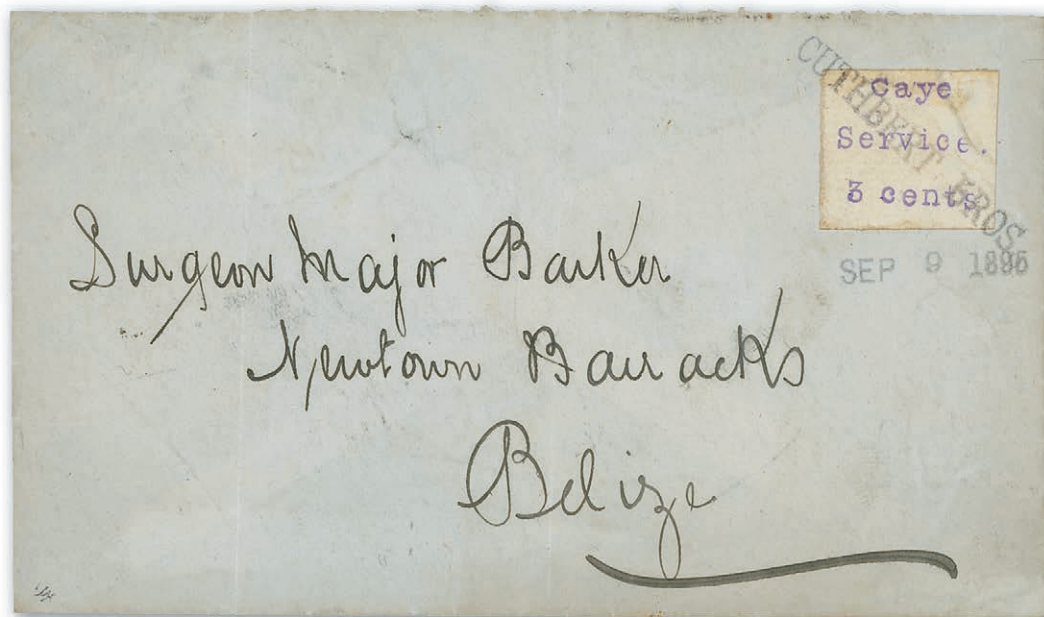 CUTHBERT BROS
Caye
Service.
3 cents
SEP 9 1895
Surgeon Major Barker
Newtown Barracks
Belize